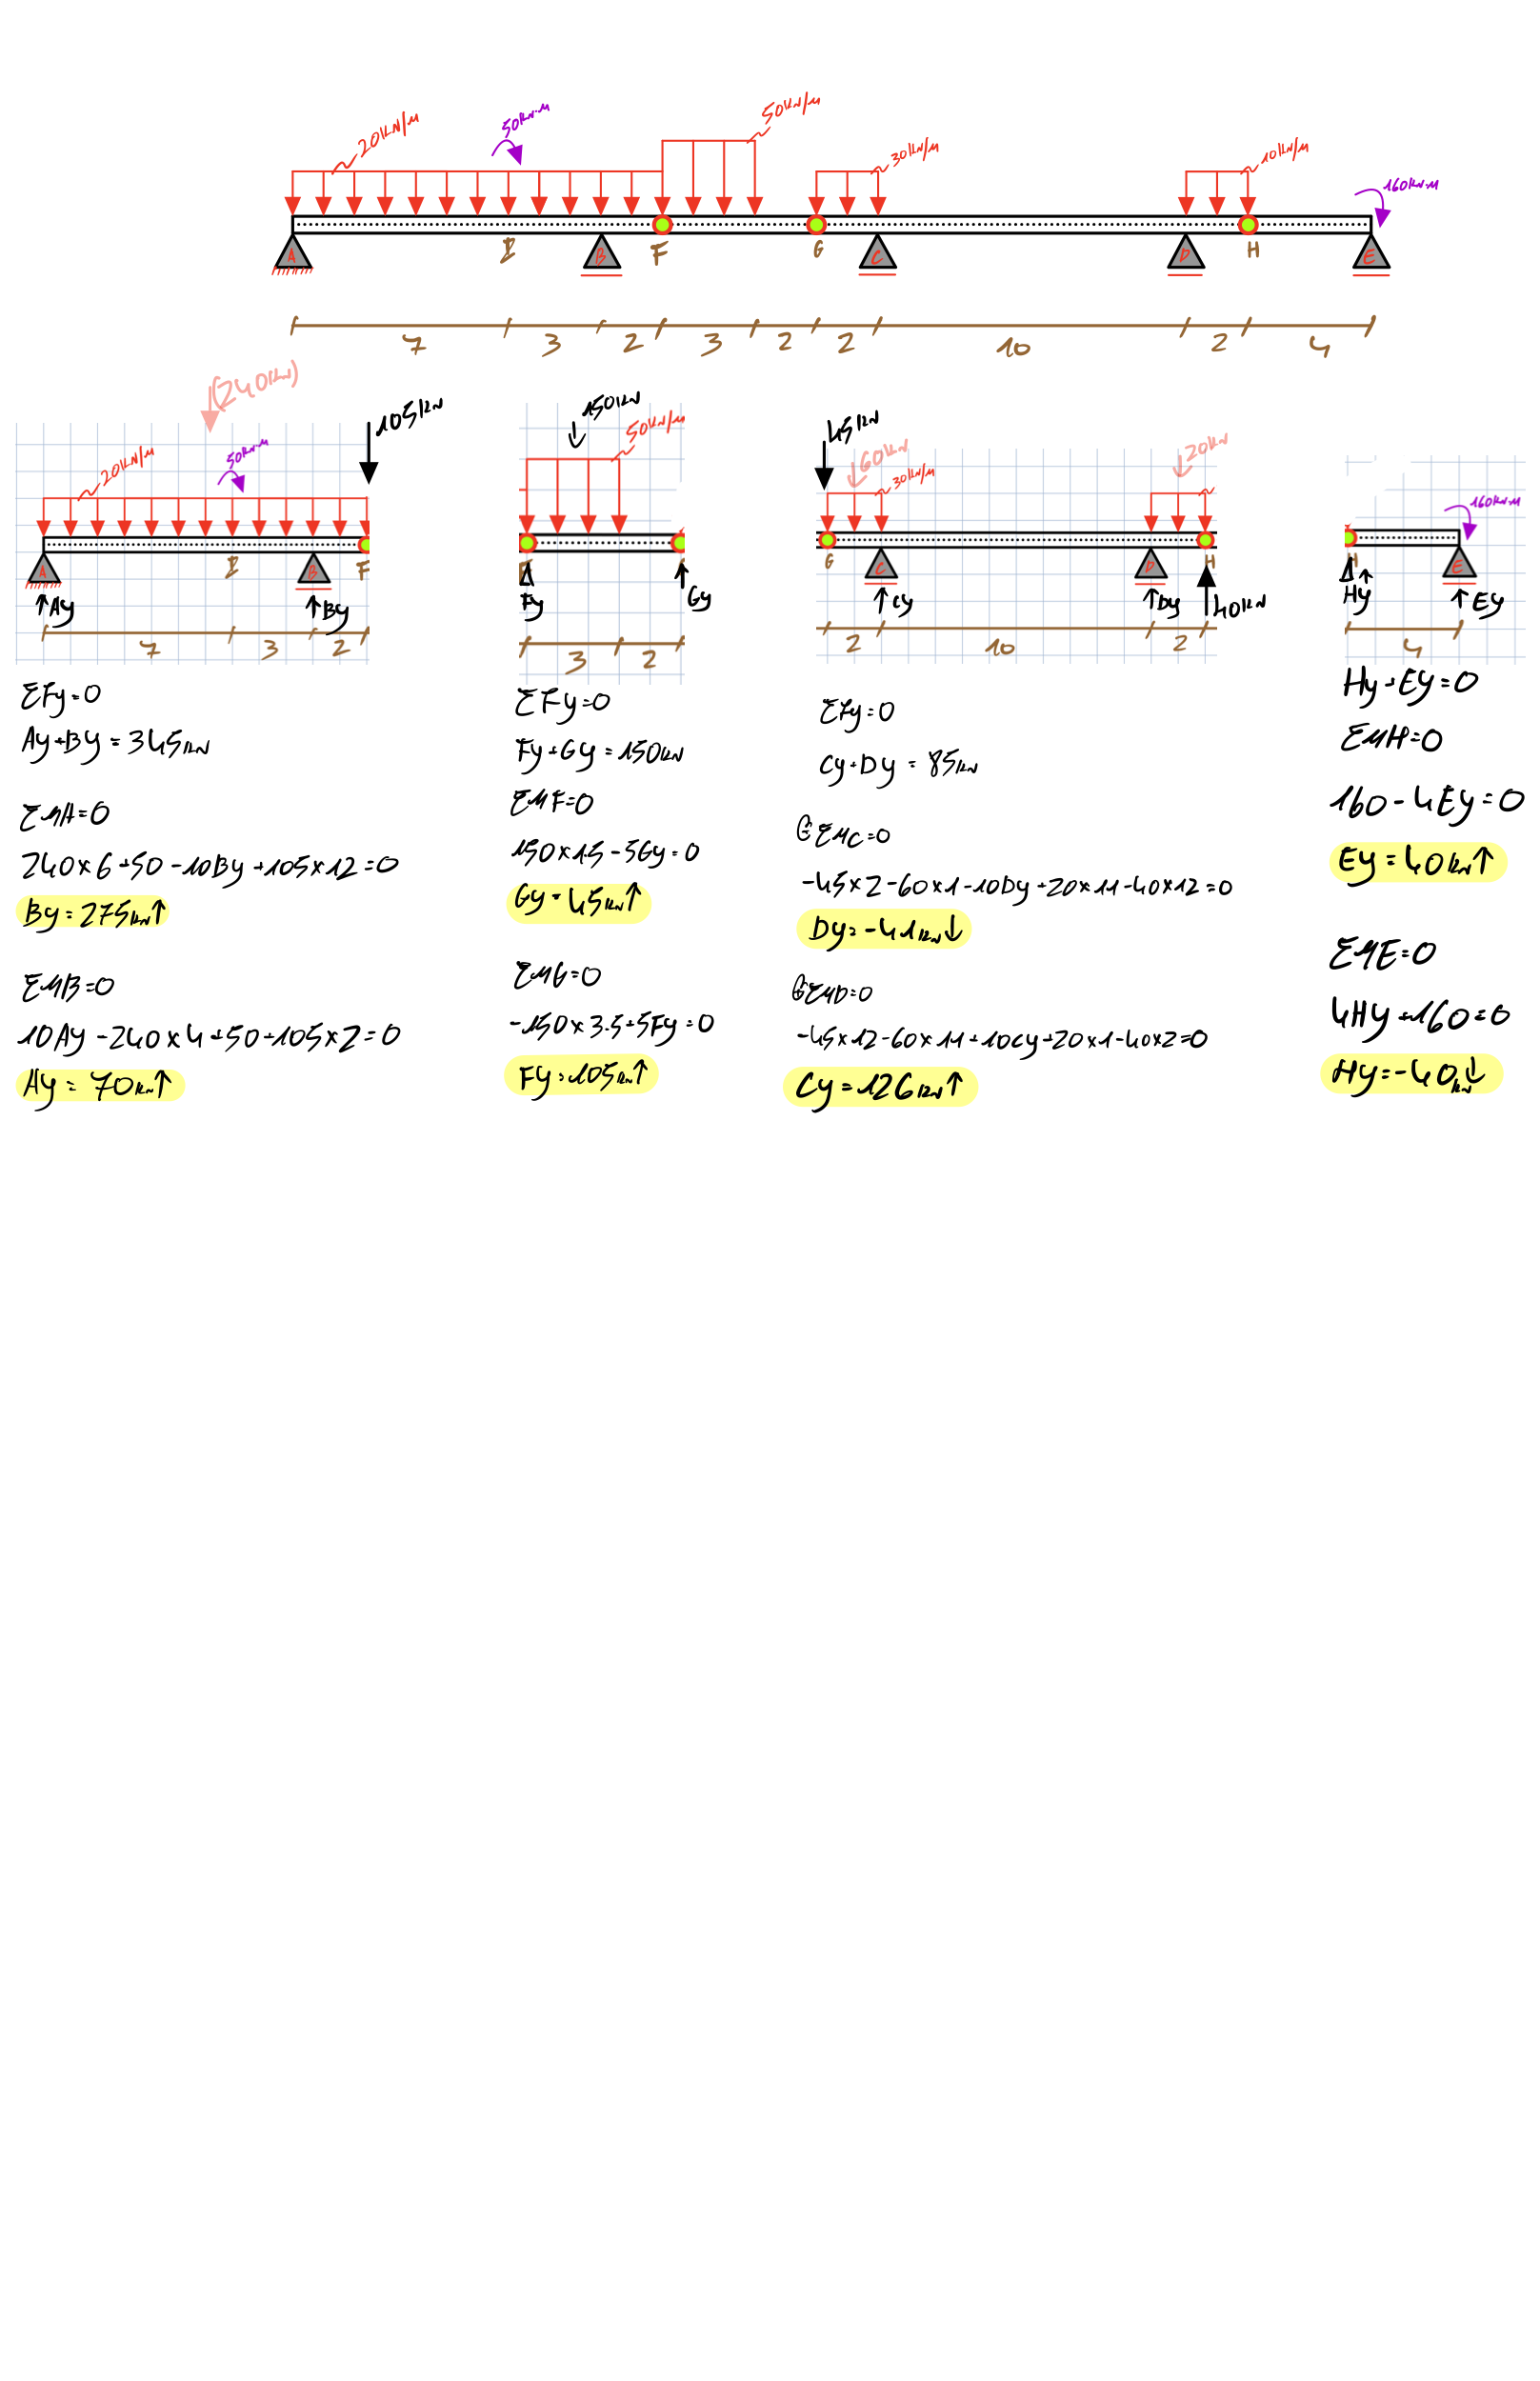 20kN/m
50kN·m
50kN/m
30kN/m
10kN/m
160kN·m
A
I
B
F
G
C
D
H
E
7
3
2
3
2
2
10
2
4
(240kN)
105kN
20kN/m
50kN·m
A
I
B
F
Ay
By
7
3
2
ΣFy=0
Ay+By = 345kN
ΣMA=0
240×6+50-10By+105×12=0
By=275kN↑
ΣMB=0
10Ay-240×4+50+105×2=0
Ay= 70kN↑
150kN
50kN/m
Fy
Gy
3
2
ΣFy=0
Fy+Gy=150kN
ΣMF=0
150×1.5-5Gy=0
Gy=45kN↑
ΣMG=0
-150×3.5+5Fy=0
Fy=105kN↑
45kN
60kN
30kN/m
20kN
G
C
D
H
Cy
Dy
40kN
2
10
2
ΣFy=0
Cy+Dy = 85kN
ΣMC=0
-45×2-60×1-10Dy+20×11-40×12=0
Dy=-41kN↓
ΣMD=0
-45×12-60×11+10Cy+20×1-40×2=0
Cy=126kN↑
160kN·m
H
E
Hy
Ey
4
Hy+Ey=0
ΣMH=0
160-4Ey=0
Ey=40kN↑
ΣME=0
4Hy+160=0
Hy=-40kN↓